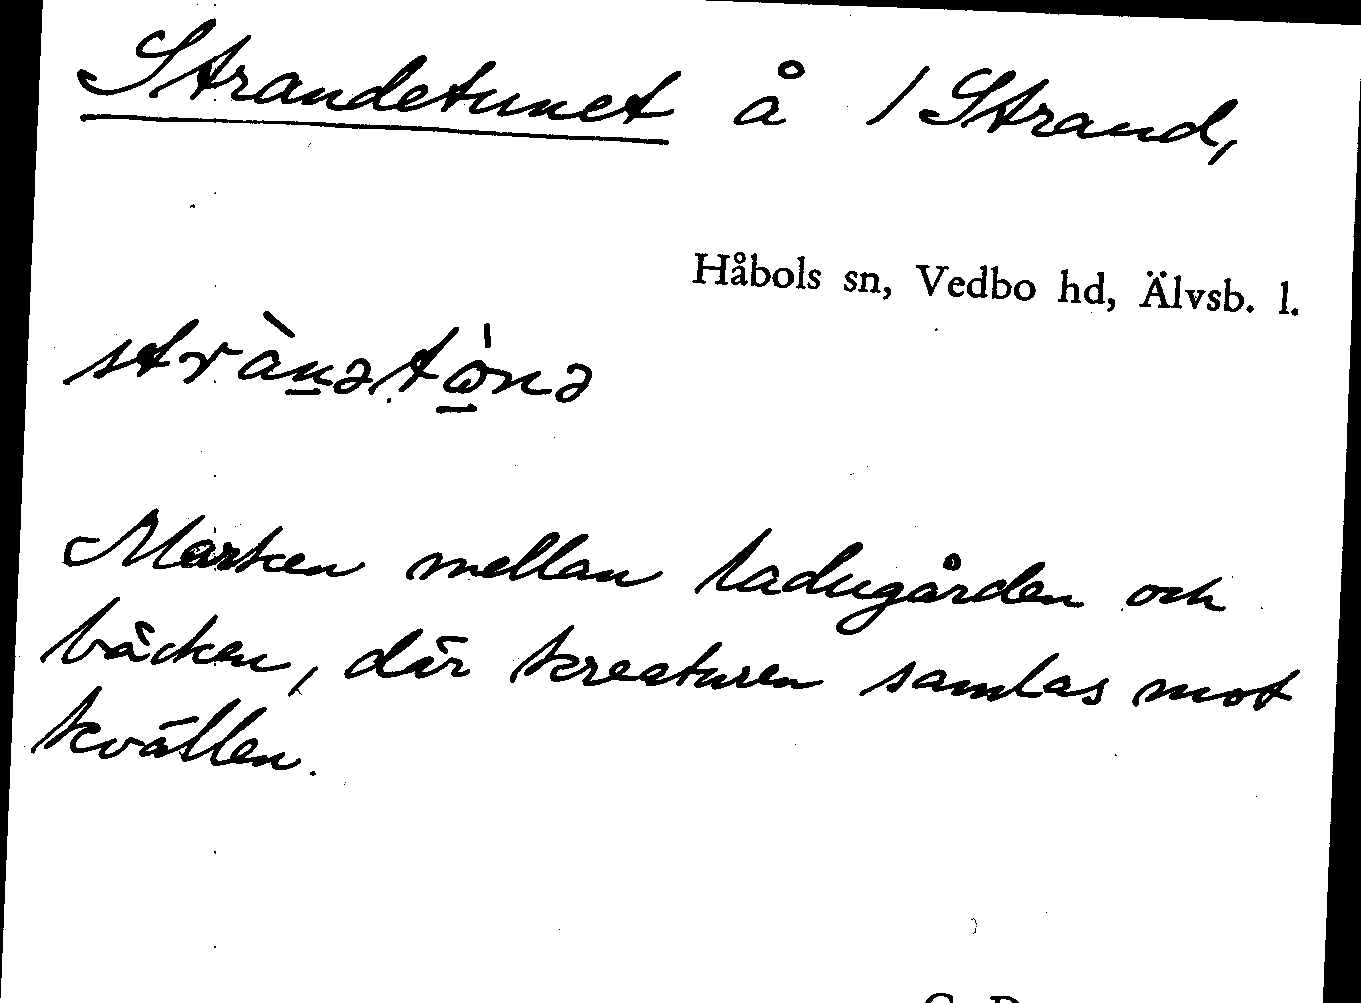 Strandetunet å / Strand,
Håbols sn, Vedbo hd, Älvsb. l.
strànətǫ́nə
Marken mellan ladugården och
bäcken, där kreaturen samlas mot
kvällen.